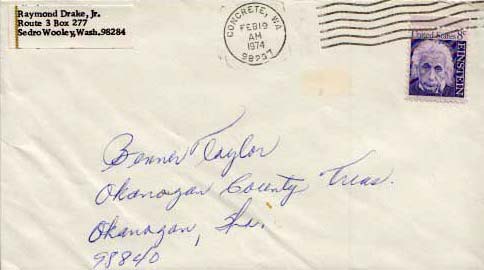 Raymond Drake, Jr.
Route 3 Box 277
Sedro Wooley, Wash. 98284
CONCRETE, WA
FEB 19
AM
1974
98237
United States 8c
EINSTEIN
Benner Taylor
Okanogan County Treas.
Okanogan, Wa.
98840